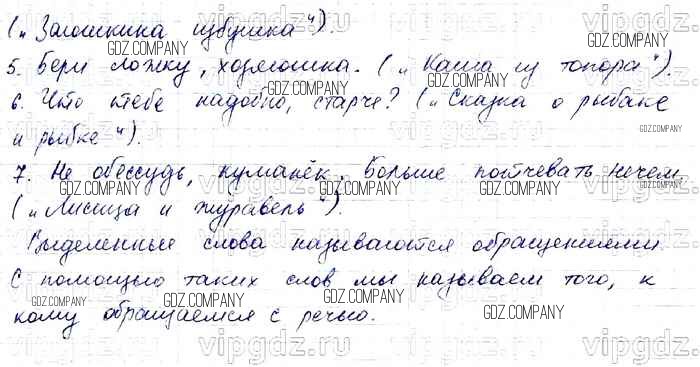 („Заюшкина избушка“).
5. Бери ложку, хозяюшка. („Каша из топора“).
6. Что тебе надобно, старче? („Сказка о рыбаке
и рыбке“).
7. Не обессудь, куманёк. Больше потчевать нечем.
(„Лисица и журавель“).
Выделенные слова называются обращениями.
С помощью таких слов мы называем того, к
кому обращаемся с речью.